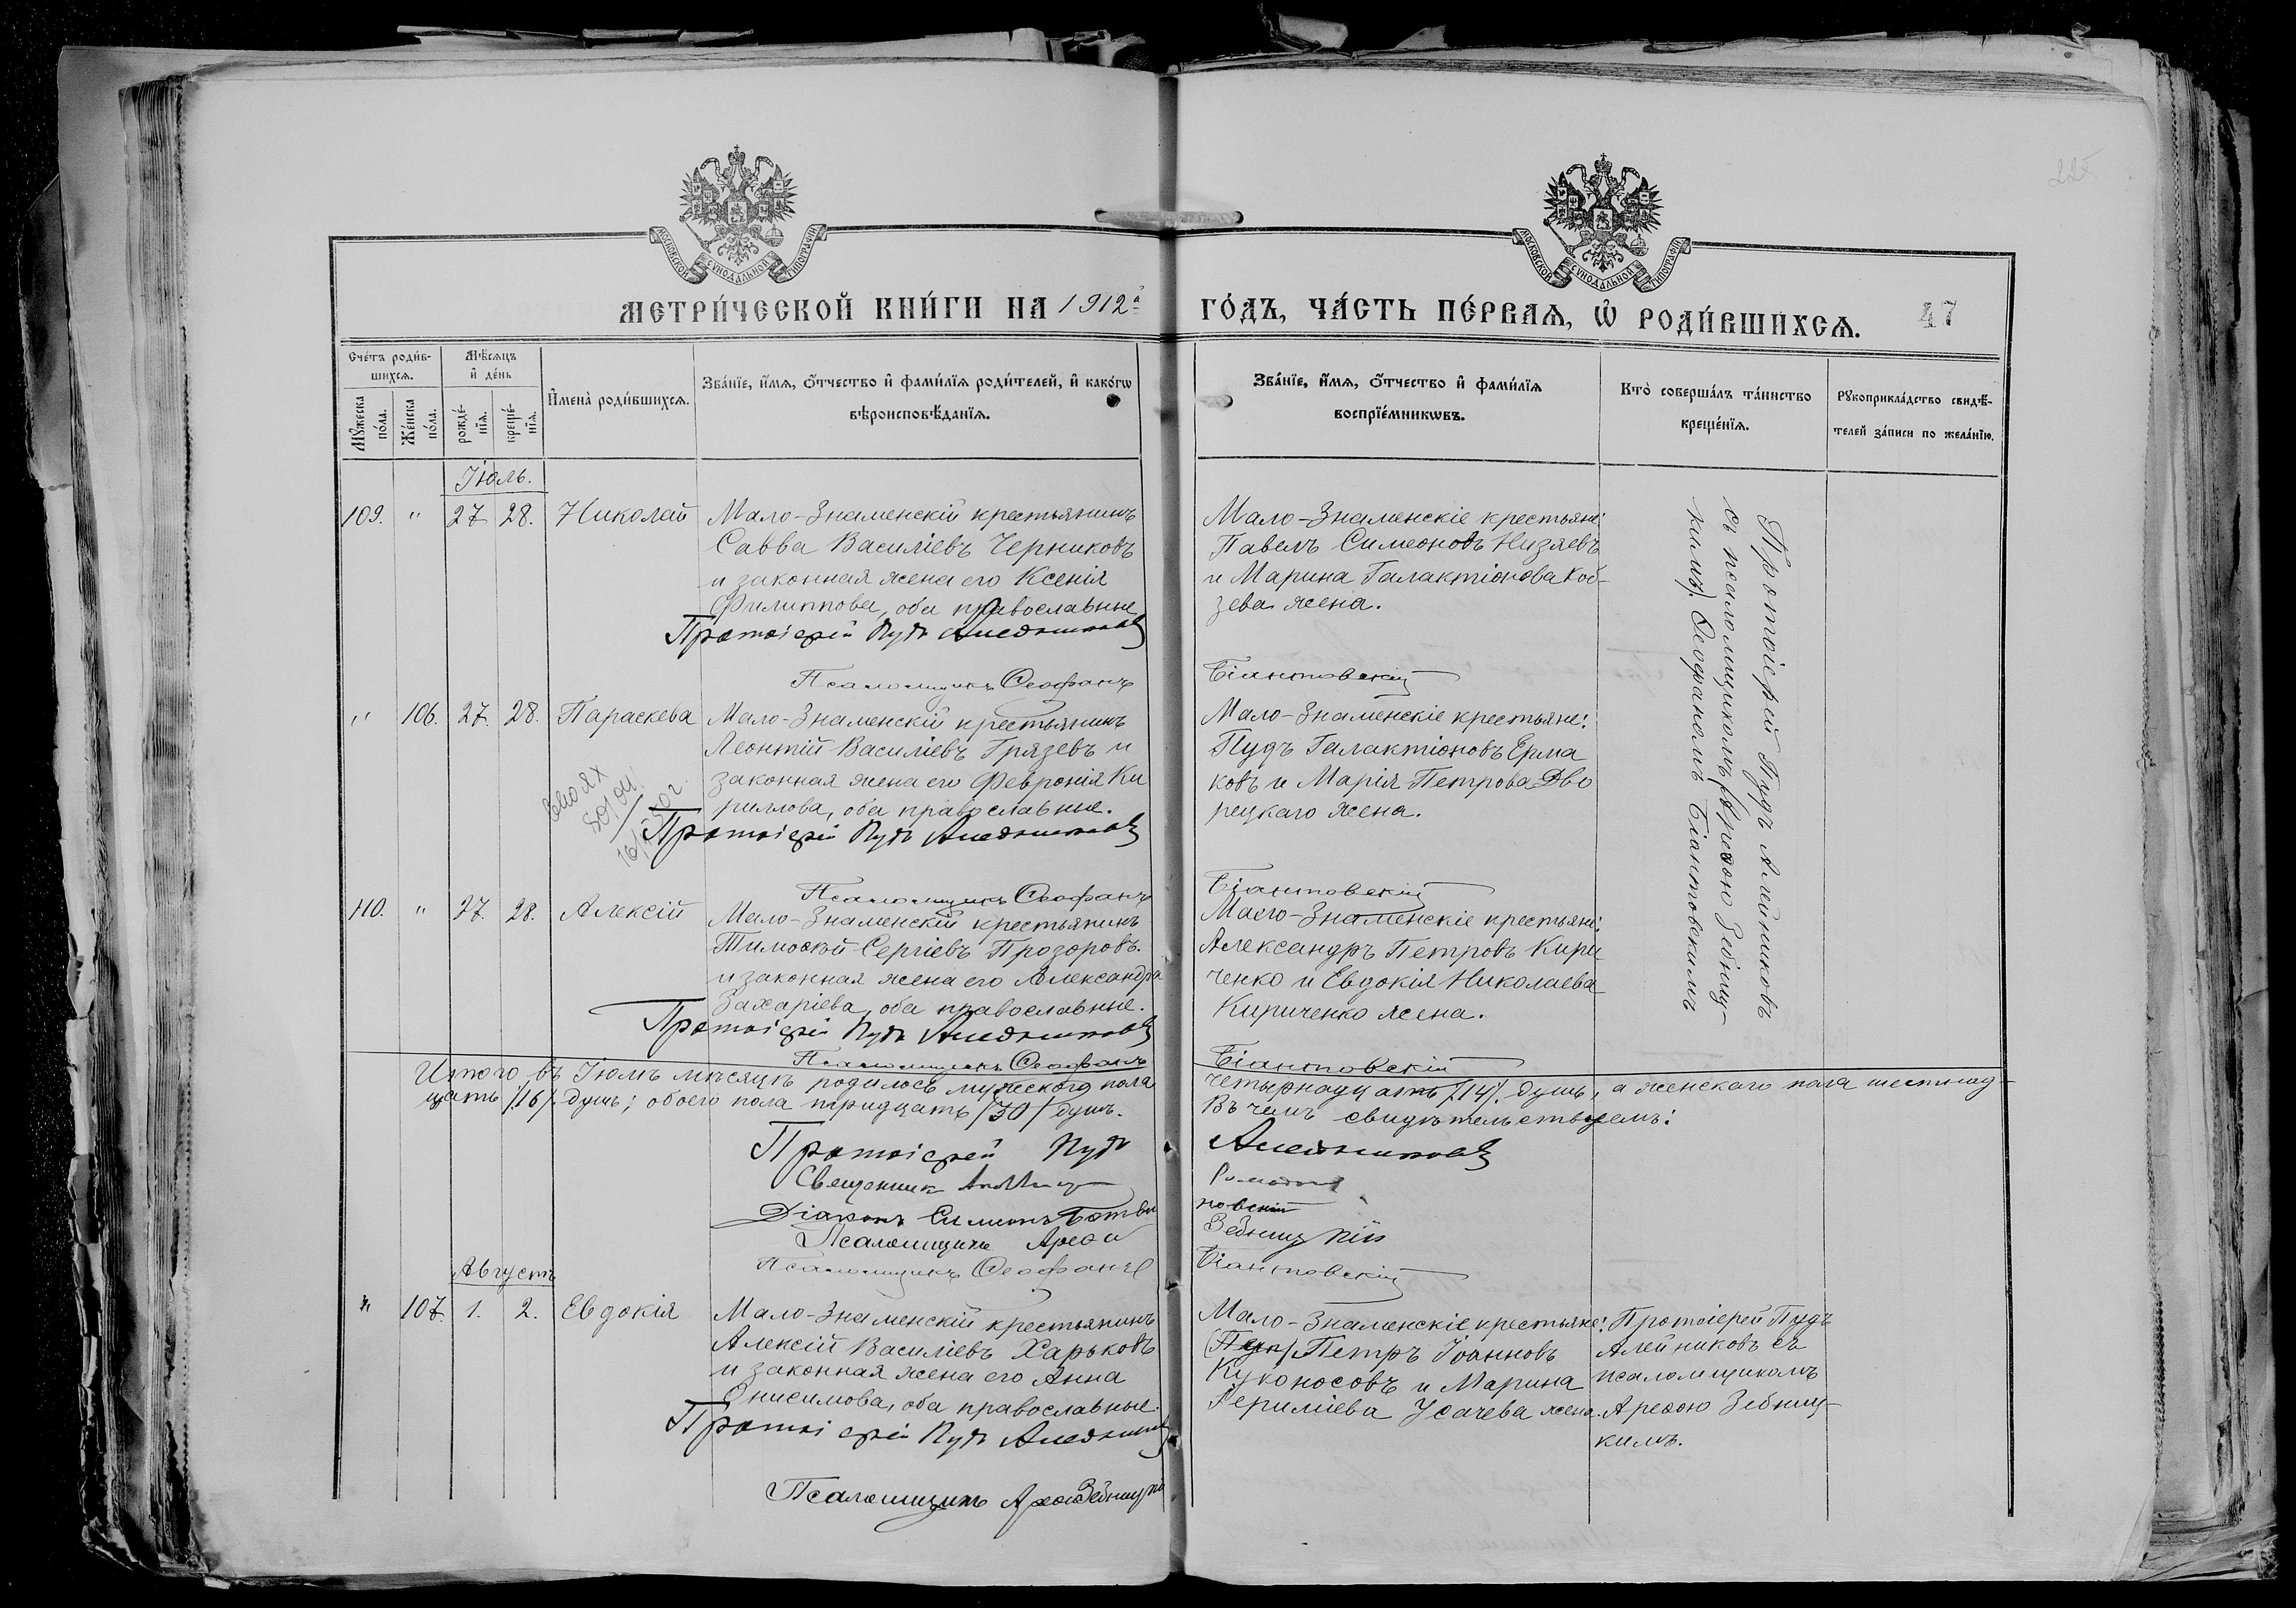 МОСКОВСКОЙ СѴНОДАЛЬНОЙ ТИПОГРАФІИ
МОСКОВСКОЙ СѴНОДАЛЬНОЙ ТИПОГРАФІИ
МЕТРИ́ЧЕСКОЙ КНИ́ГИ НА 1912й
ГО́ДЪ, ЧА́СТЬ ПЕ́РВАЯ, Ѡ РОДИ́ВШИХСЯ. 47
Сче́тъ роди́в-
шихся.
Му́жеска
по́ла.
Же́нска
по́ла.
Мѣ́сяцъ
и де́нь
рожде́-
нїя.
креще́-
нїя.
Имена̀ роди́вшихся.
Зва́нїе, и́мя, о́тчество и фами́лїя роди́телей, и како́гѡ
вѣроисповѣ́данїя.
Зва́нїе, и́мя, о́тчество и фами́лїя
воспрїе́мникѡвъ.
Кто̀ соверша́лъ та́инство
креще́нїя.
Рꙋкоприкла́дство свидѣ́-
телей за́писи по жела́нїю.
Іюль.
109. " 27 28. Николай
Мало-Знаменскій крестьянинъ
Савва Василіевъ Черниковъ
и законная жена его Ксенія
Филиппова, оба православные
Протоіерей Пудъ Алейниковъ
Мало-Знаменскіе крестьяне:
Павелъ Симеоновъ Низяевъ
и Марина Галактіонова Коб-
зева жена.
Протоіерей Пудъ Алейниковъ
съ псаломщикомъ (Арефою Зебниц-
кимъ) Ѳеофаномъ Біантовскимъ
Псаломщикъ Ѳеофанъ Біантовскій
" 106. 27. 28. Параскева
Мало-Знаменскій крестьянинъ
Леонтій Василіевъ Грязевъ и
законная жена его Февронія Ки
риллова, оба православные.
Протоіерей Пудъ Алейниковъ
Мало-Знаменскіе крестьяне:
Пудъ Галактіоновъ Ерма
ковъ и Марія Петрова Дво
рецкаго жена.
Псаломщикъ Ѳеофанъ Біантовскій
110. " 27. 28. Алексій
Мало-Знаменскій крестьянинъ
Тимоѳей Сергіевъ Прозоровъ
и законная жена его Александра
Захаріева, оба православные.
Протоіерей Пудъ Алейниковъ
Мало-Знаменскіе крестьяне:
Александръ Петровъ Кири
ченко и Евдокія Николаева
Кириченко жена.
Псаломщикъ Ѳеофанъ Біантовскій
Итого въ Іюлѣ мѣсяцѣ родилось мужескаго пола четырнадцать /14/. душъ, а женскаго пола шестнад-
цать /16/. душъ; обоего пола тридцать /30/ душъ. Въ чемъ свидѣтельствуемъ:
Протоіерей Пудъ Алейниковъ
Священник
Діаконъ
новскій
Псаломщикъ Арефа Зебницкій
Псаломщикъ Ѳеофанъ Біантовскій
Августъ
" 107. 1. 2. Евдокія
Мало-Знаменскій крестьянинъ
Алексій Василіевъ Харьковъ
и законная жена его Анна
Онисимова, оба православные.
Протоіерей Пудъ Алейниковъ
Мало-Знаменскіе крестьяне:
Петръ Іоанновъ
Куконосовъ и Марина
Усачева жена.
Протоіерей Пудъ
Алейниковъ съ
псаломщикомъ
Арефою Зебниц-
кимъ.
Псаломщикъ Арефа Зебницкій